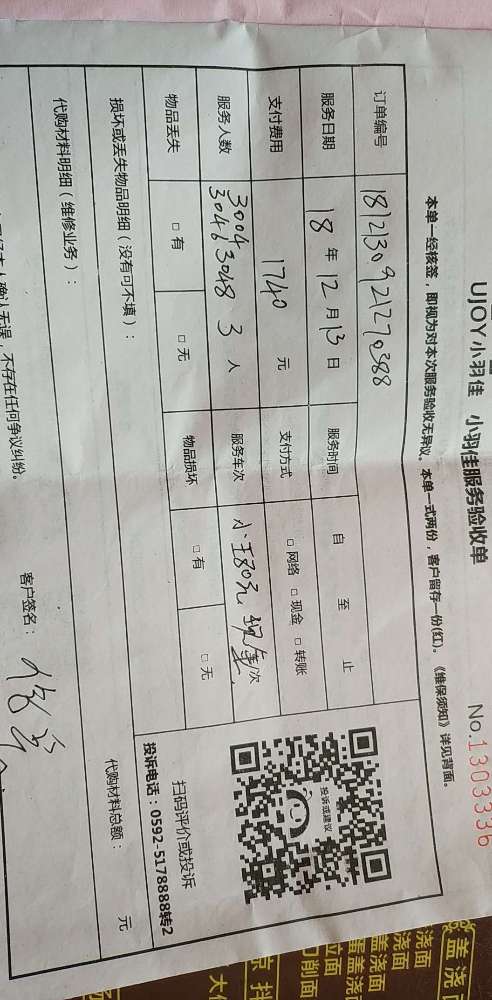 UJOY小羽佳 小羽佳服务验收单
No.1303336
本单一经核签，即视为对本次服务验收无异议。本单一式两份，客户留存一份(红)。《维保须知》详见背面。
订单编号 1812130921270388
服务日期 18年12月13日 服务时间 自 至 止
支付费用 1740 元 支付方式 □网络 □现金 □转账
服务人数 3004 3046 3048 3 人 服务车次 小王80元 现金/次
物品丢失 □有 □无 物品损坏 □有 □无
损坏或丢失物品明细（没有可不填）：
代购材料明细（维修业务）：
代购材料总额： 元
确认无误，不存在任何争议纠纷。 客户签名：
投诉或建议
扫码评价或投诉
投诉电话：0592-5178888转2
盖浇
浇面
盖浇面
蛋盖浇面
拉面
刀削面